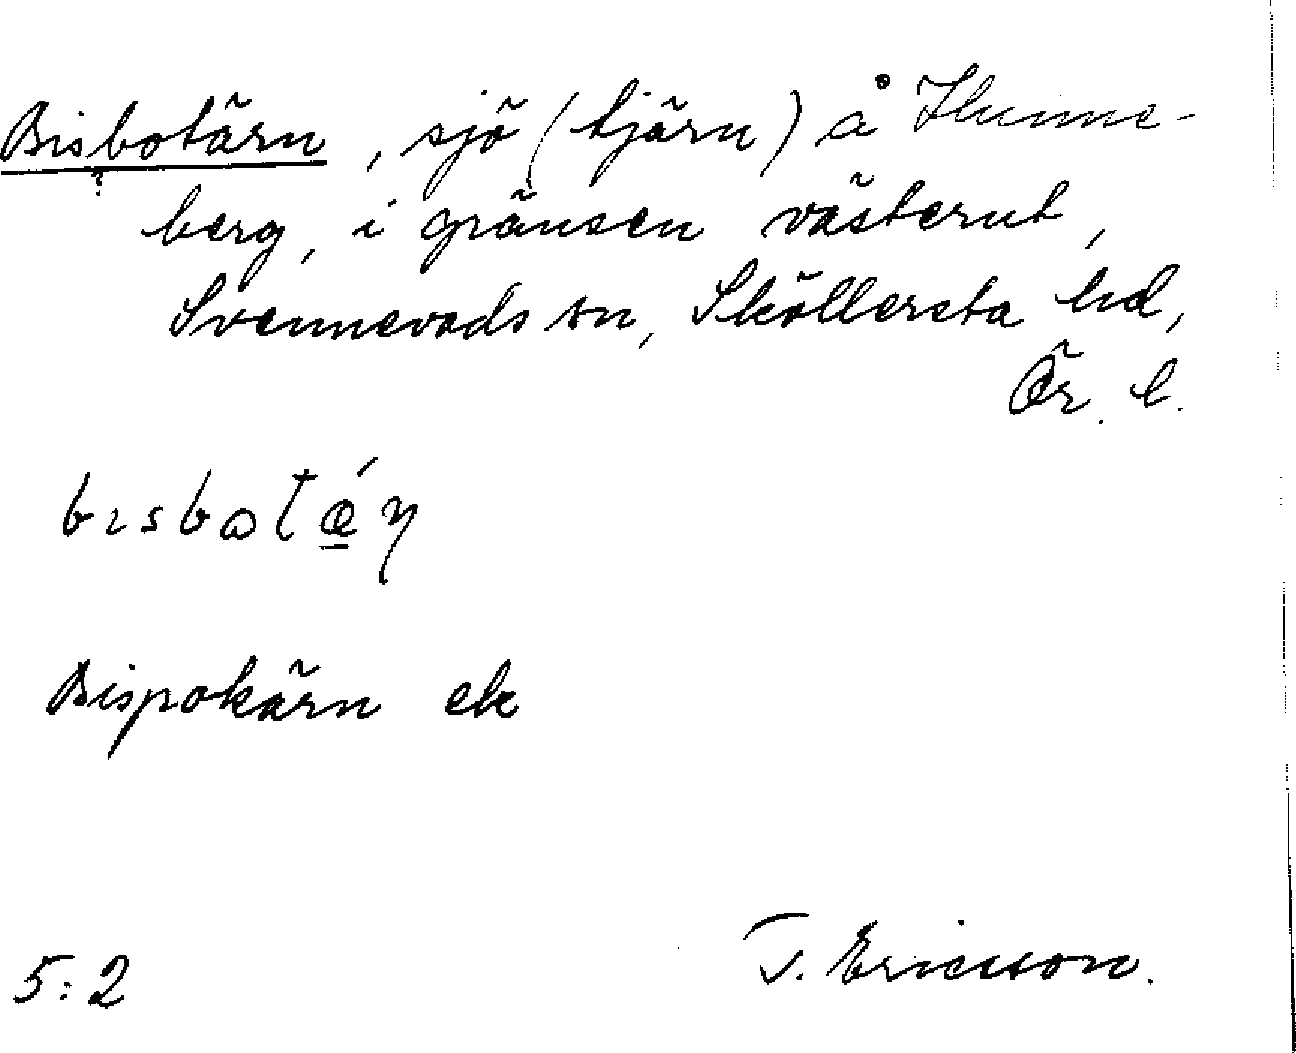 Bisbotärn, sjö (tjärn) å Hunne-
?
berg, i gränsen västerut,
Svennevads sn, Sköllersta hd,
Ör. l.
bısbatǽ̲ɳ
Bispokärn ek
5:2 T. Ericsson.